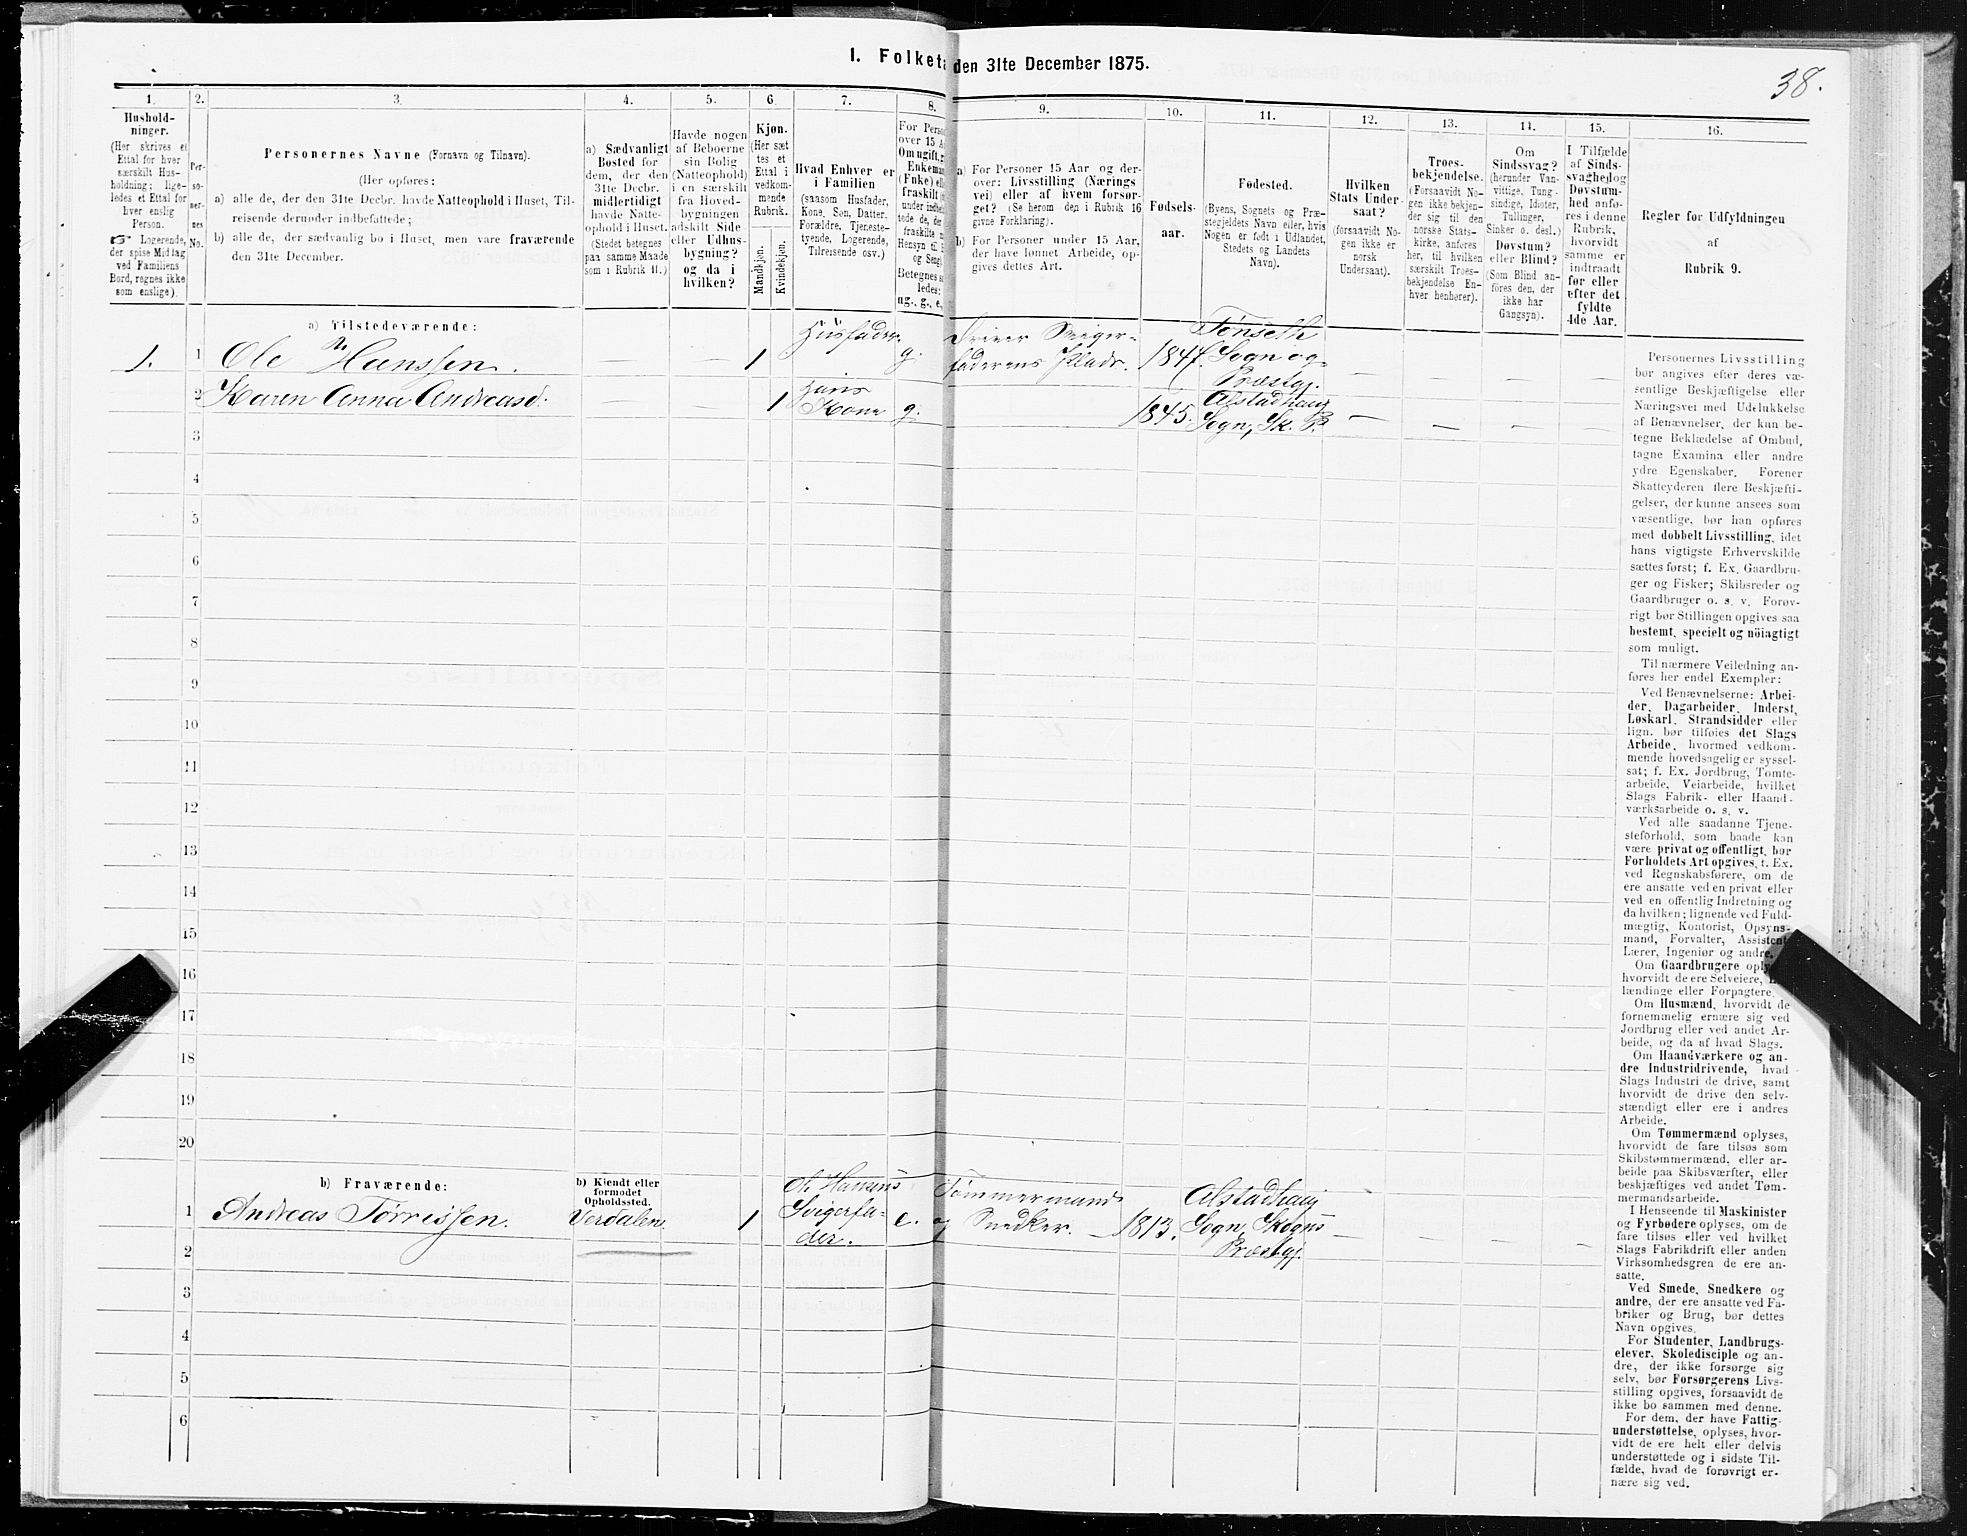 I. Folketæ den 31te December 1875.
38.
1. 2. 3. 4. 5. 6. 7. 8. 9. 10. 11. 12. 13. 14. 15. 16.
Hushold-
ninger.
(Her skrives et
Ettal for hver
særskilt Hus-
holdning; lige-
ledes et Ettal for
hver enslig
Person.
☞ Logerende,
der spise Middag
ved Familiens
Bord, regnes ikke
som enslige).
Per-
so-
ner-
nes
No.
Personernes Navne (Fornavn og Tilnavn).
(Her opføres:
a) alle de, der den 31te Decbr. havde Natteophold i Huset, Til-
reisende derunder indbefattede;
b) alle de, der sædvanlig bo i Huset, men vare fraværende
den 31te December.
a) Sædvanligt
Bosted for
dem, der den
31te Decbr.
midlertidigt
havde Natte-
ophold i Huset.
(Stedet betegnes
paa samme Maade
som i Rubrik 11.)
Havde nogen
af Beboerne
sin Bolig
(Natteophold)
i en særskilt
fra Hoved-
bygningen
adskilt Side
eller Udhus-
bygning?
og da i
hvilken?
Kjøn.
(Her sæt
tes et
Ettal i
vedkom-
mende
Rubrik.
Mandkjøn.
Kvindekjøn.
Hvad Enhver er
i Familien
(saasom Husfader,
Kone, Søn, Datter,
Forældre, Tjeneste-
tyende, Logerende,
Tilreisende osv.)
For Perso
over 15 A
Om ugift, g
Enkeman
(Enke) el
fraskilt
under indbe
tede de, de
fraskilte
Hensyn til
og Seng
Betegnes s
ledes:
ug., g., e.,
a) For Personer 15 Aar og der-
over: Livsstilling (Nærings
vei) eller af hvem forsør-
get? (Se herom den i Rubrik 16
givne Forklaring).
b) For Personer under 15 Aar,
der have lønnet Arbeide, op-
gives dettes Art.
Fødsels-
aar.
Fødested.
(Byens, Sognets og Præ-
stegjeldets Navn eller, hvis
Nogen er født i Udlandet,
Stedets og Landets
Navn).
Hvilken
Stats Under-
saat?
(forsaavidt No-
gen ikke er
norsk
Undersaat).
Troes-
bekjendelse.
(Forsaavidt No-
gen ikke bekjen-
der sig til den
norske Stats-
kirke, anføres
her, til hvilken
særskilt Troes-
bekjendelse En-
hver henhører).
Om
Sindssvag?
(herunder Van-
vittige, Tung-
sindige, Idioter,
Tullinger,
Sinker o. desl.)
Døvstum?
eller Blind?
(Som Blind an-
føres den, der
ikke har
Gangsyn).
I Tilfælde
af Sinds-
svaghed og
Døvstum-
hed anfø-
res i denne
Rubrik,
hvorvidt
samme er
indtraadt
før eller
efter det
fyldte
4de Aar.
Regler for Udfyldningen
af
Rubrik 9.
a) Tilstedeværende:
1. 1 Ole Hanssen. — — 1 Husfader g. Driver Sviger-
faderens Plads. 1847. Tønseth
Sogn og
Præstgj. — — — —
2 Karen Anna Andreasd. — — 1 hans
Kone g. 1845. Alstadhaug
Sogn, Sk. P. — — — —
3
4
5
6
7
8
9
10
11
12
13
14
15
16
17
18
19
20
b) Fraværende:
b) Kjendt eller
formodet
Opholdssted.
1 Andreas Tørrissen. Verdalen. 1 O. Hansens
Svigerfa-
der. e. Tømmermand
og Snedker. — 1813. Alstadhaug
Sogn, Skogns
Præstgj. — — — —
2
3
4
5
6
Personernes Livsstilling
bør angives efter deres væ-
sentlige Beskjæftigelse eller
Næringsvei med Udelukkelse
af Benævnelser, der kun be-
tegne Beklædelse af Ombud,
tagne Examina eller andre
ydre Egenskaber. Forener
Skatteyderen flere Beskjæfti-
gelser, der kunne ansees som
væsentlige, bør han opføres
med dobbelt Livsstilling, idet
hans vigtigste Erhvervskilde
sættes først; f. Ex. Gaardbru-
ger og Fisker; Skibsreder og
Gaardbruger o. s. v. Forøv-
rigt bør Stillingen opgives saa
bestemt, specielt og nöiagtigt
som muligt.
Til nærmere Veiledning an-
føres her endel Exempler:
Ved Benævnelserne: Arbei-
der, Dagarbeider, Inderst,
Løskarl, Strandsidder eller
lign. bør tilføies det Slags
Arbeide, hvormed vedkom-
mende hovedsagelig er syssel-
sat; f. Ex. Jordbrug, Tomte-
arbeide, Veiarbeide, hvilket
Slags Fabrik- eller Haand-
værksarbeide o. s. v.
Ved alle saadanne Tjene-
steforhold, som baade kan
være privat og offentligt, bør
Forholdets Art opgives, f. Ex.
ved Regnskabsførere, om de
ere ansatte ved en privat eller
ved en offentlig Indretning og
da hvilken; lignende ved Fuld-
mægtig, Kontorist, Opsyns-
mand, Forvalter, Assistent,
Lærer, Ingeniør og andre.
Om Gaardbrugere oply
hvorvidt de ere Selveiere,
lændinge eller Forpagtere.
Om Husmænd, hvorvidt de
fornemmelig ernære sig ved
Jordbrug eller ved andet Ar-
beide, og da af hvad Slags.
Om Haandværkere og an-
dre Industridrivende, hvad
Slags Industri de drive, samt
hvorvidt de drive den selv-
stændigt eller ere i andres
Arbeide.
Om Tømmermænd oplyses,
hvorvidt de fare tilsøs som
Skibstømmermænd, eller ar-
beide paa Skibsværfter, eller
beskjæftiges ved andet Tøm-
mermandsarbeide.
I Henseende til Maskinister
og Fyrbødere oplyses, om de
fare tilsøs eller ved hvilket
Slags Fabrikdrift eller anden
Virksomhedsgren de ere an-
satte.
Ved Smede, Snedkere og
andre, der ere ansatte ved Fa-
briker og Brug, bør dettes
Navn opgives.
For Studenter, Landbrugs-
elever, Skoledisciple og an-
dre, der ikke forsørge sig
selv, bør Forsørgerens Livs-
stilling opgives, forsaavidt de
ikke bo sammen med denne.
For dem, der have Fattig-
understøttelse, oplyses, hvor-
vidt de ere helt eller delvis
understøttede og i sidste Til-
fælde, hvad de forøvrigt er-
nære sig ved.